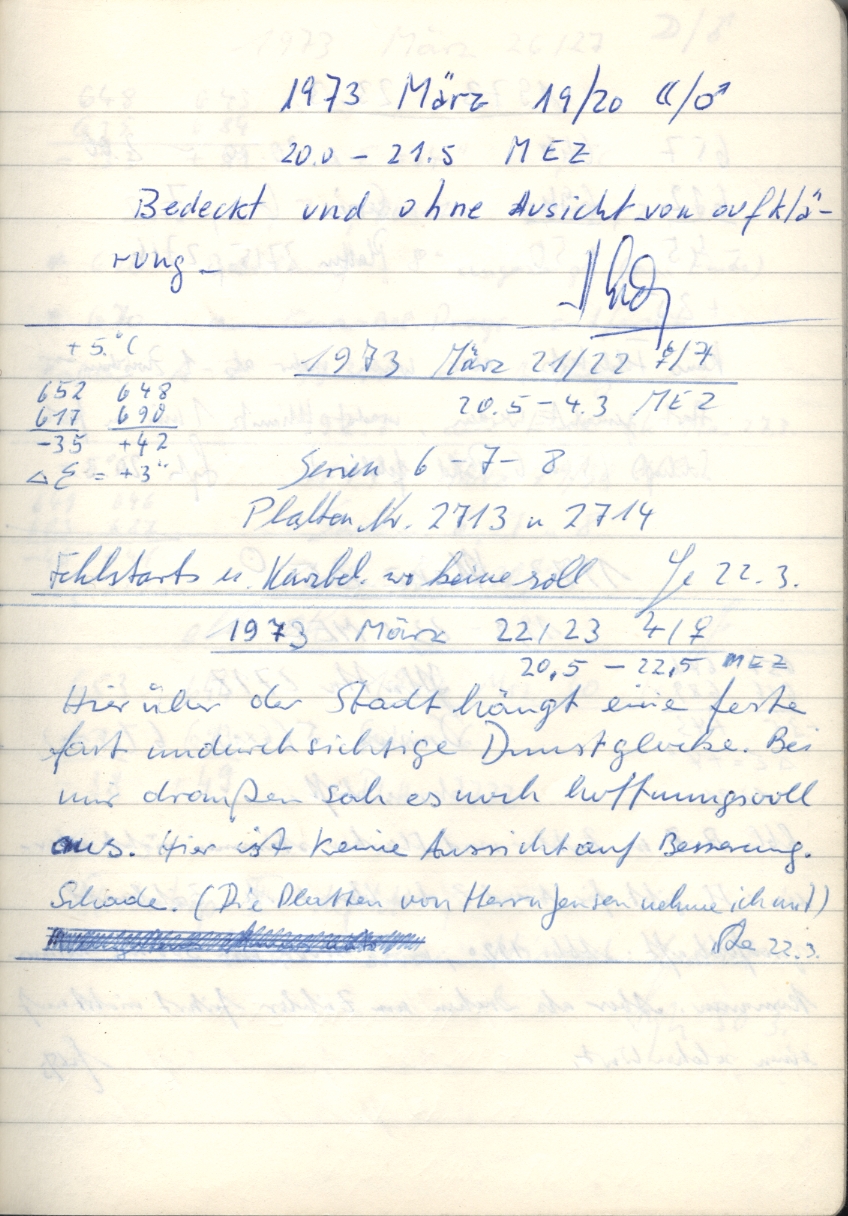 1973 März 19/20 ☾/♂
20.0 – 21.5 MEZ
Bedeckt und ohne Aussicht von aufklä-
rung –
+ 5.°C
1973 März 21/22 ☿/♃
652 648
617 690
-35 +42
20.5 – 4.3 MEZ
Δε = +3"
Serien 6 – 7 – 8
Platten Nr. 2713 u 2714
Fehlstarts u. wo keine soll Je 22.3.
1973 März 22/23 ♃/♀
20,5 – 22,5 MEZ
Hier über der Stadt hängt eine feste
fast undurchsichtige Dunstglocke. Bei
mir draußen sah es noch hoffnungsvoll
aus. Hier ist keine Aussicht auf Besserung.
Schade. (Die Platten von Herrn Jensen nehme ich mit)
22.3.